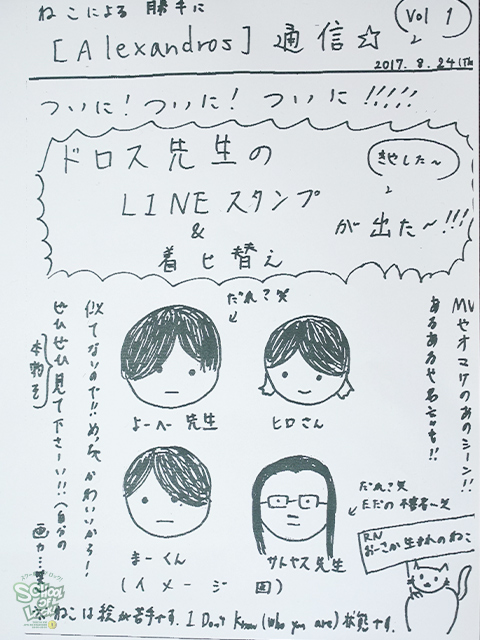 ねこによる 勝手に
Vol 1
[Alexandros] 通信☆
2017. 8. 24 (Th
ついに! ついに! ついに!!!!!
ドロス先生の
きました〜
LINEスタンプ
&
着せ替え
が出た〜!!!
MVやオマケのあのシーン!!
あるあるやる
だれ?笑
よーぺー先生
ヒロさん
まーくん
サトヤス先生
だれ?笑
(イメージ図)
似てないので!! めっちゃかわいいから!
ぜひぜひ見て下さーい!!(自分の
本物を
画力…笑
RN
おーさか生まれのねこ
※ねこは絵が苦手です。I Don't Know (Who you are) 状態です。